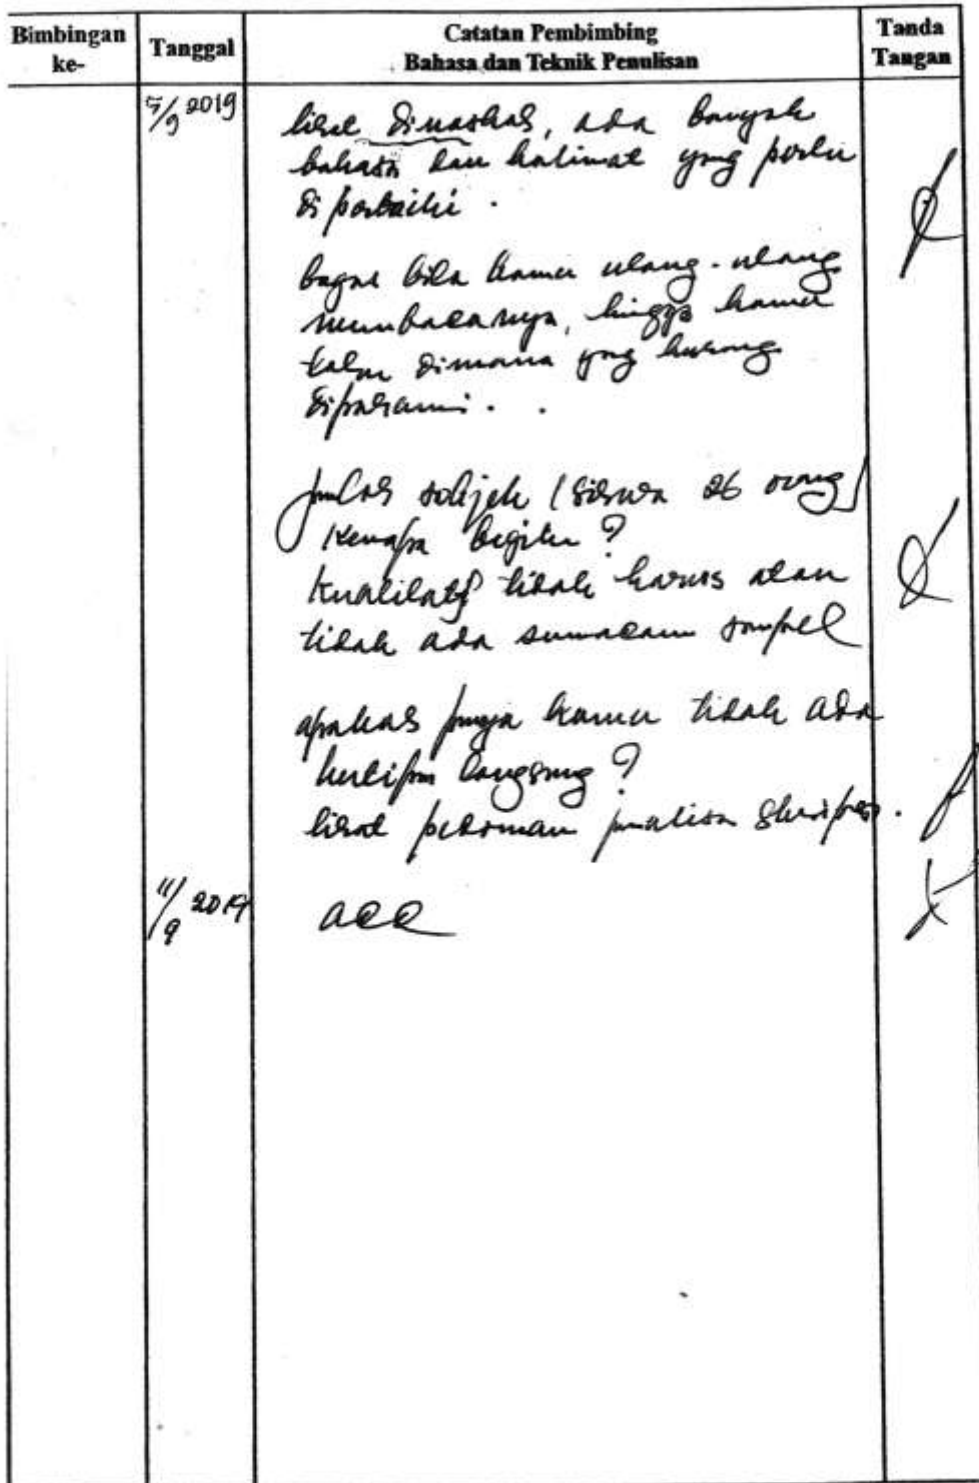 Bimbingan ke-
Tanggal
Catatan Pembimbing
Bahasa dan Teknik Penulisan
Tanda Tangan
5/9 2019
lihat dinaskah, ada banyak
bahasa dan kalimat yang perlu
diperbaiki.
bagus bila kamu ulang-ulang
membacanya, hingga kamu
tahu dimana yang kurang
dipahami.
jumlah subjek (siswa 26 orang)
kenapa begitu?
kualitatif tidak harus atau
tidak ada semacam sampel
apakah punya kamu tidak ada
kutipan langsung?
lihat pedoman penulisan skripsi.
11/9 2019
acc